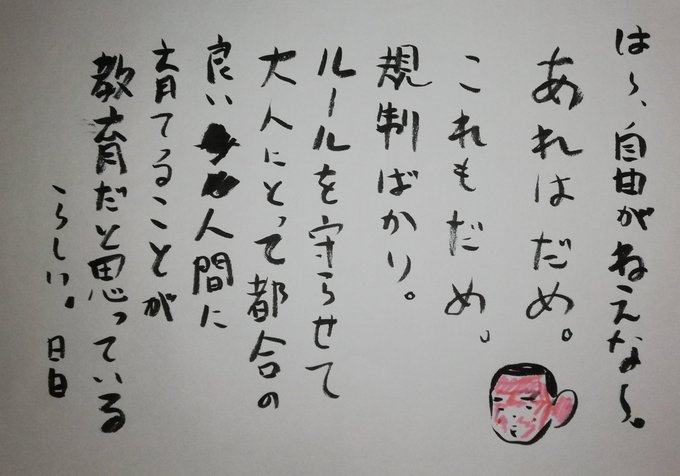 は〜、自由がねえな〜。
あれはだめ。
これもだめ。
規制ばかり。
ルールを守らせて
大人にとって都合の
良い人間に
育てることが
教育だと思っている
らしい。